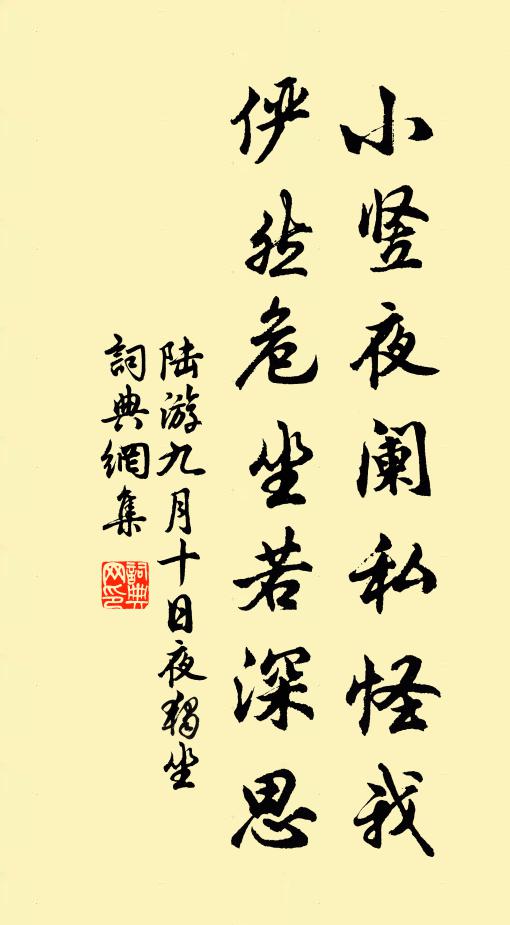 小竖夜阑私怪我
俨然危坐若深思
陆游九月十日夜独坐
詞典網集
詞典网印